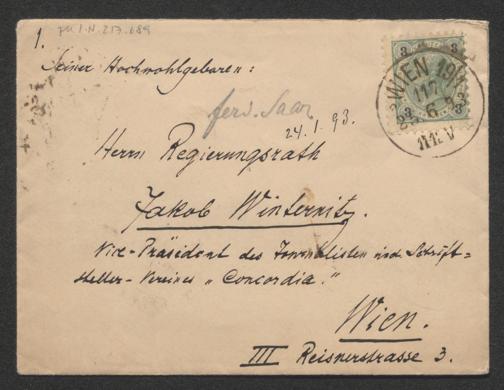 1.
PH I.N. 217.689
Seiner Hochwohlgeboren:
ferd. Saar
24.1.93.
Herrn Regierungsrath
Jakob Winternitz.
Vice-Präsident des Journalisten und Schrift=
steller-Vereines „Concordia."
Wien.
III Reisnerstrasse 3.
3 3
WIEN
3 3
11 V